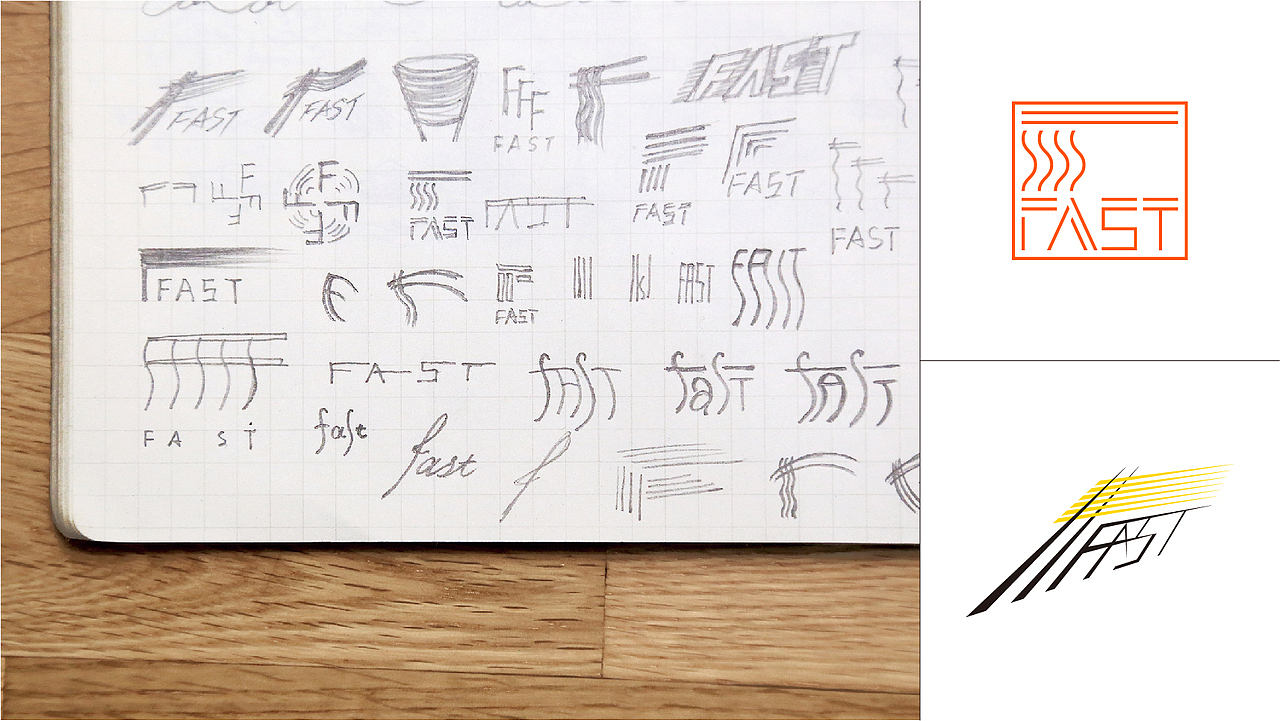 FAST
FAST
FFF
FAST
FAST
F
F
F
F
FAST
FAST
FAST
FAST
FAST
FAST
F
FAST
FAST
FAST
FAST
FAST
fAST
faST
fAST
fast
fast
f
FAST
FAST